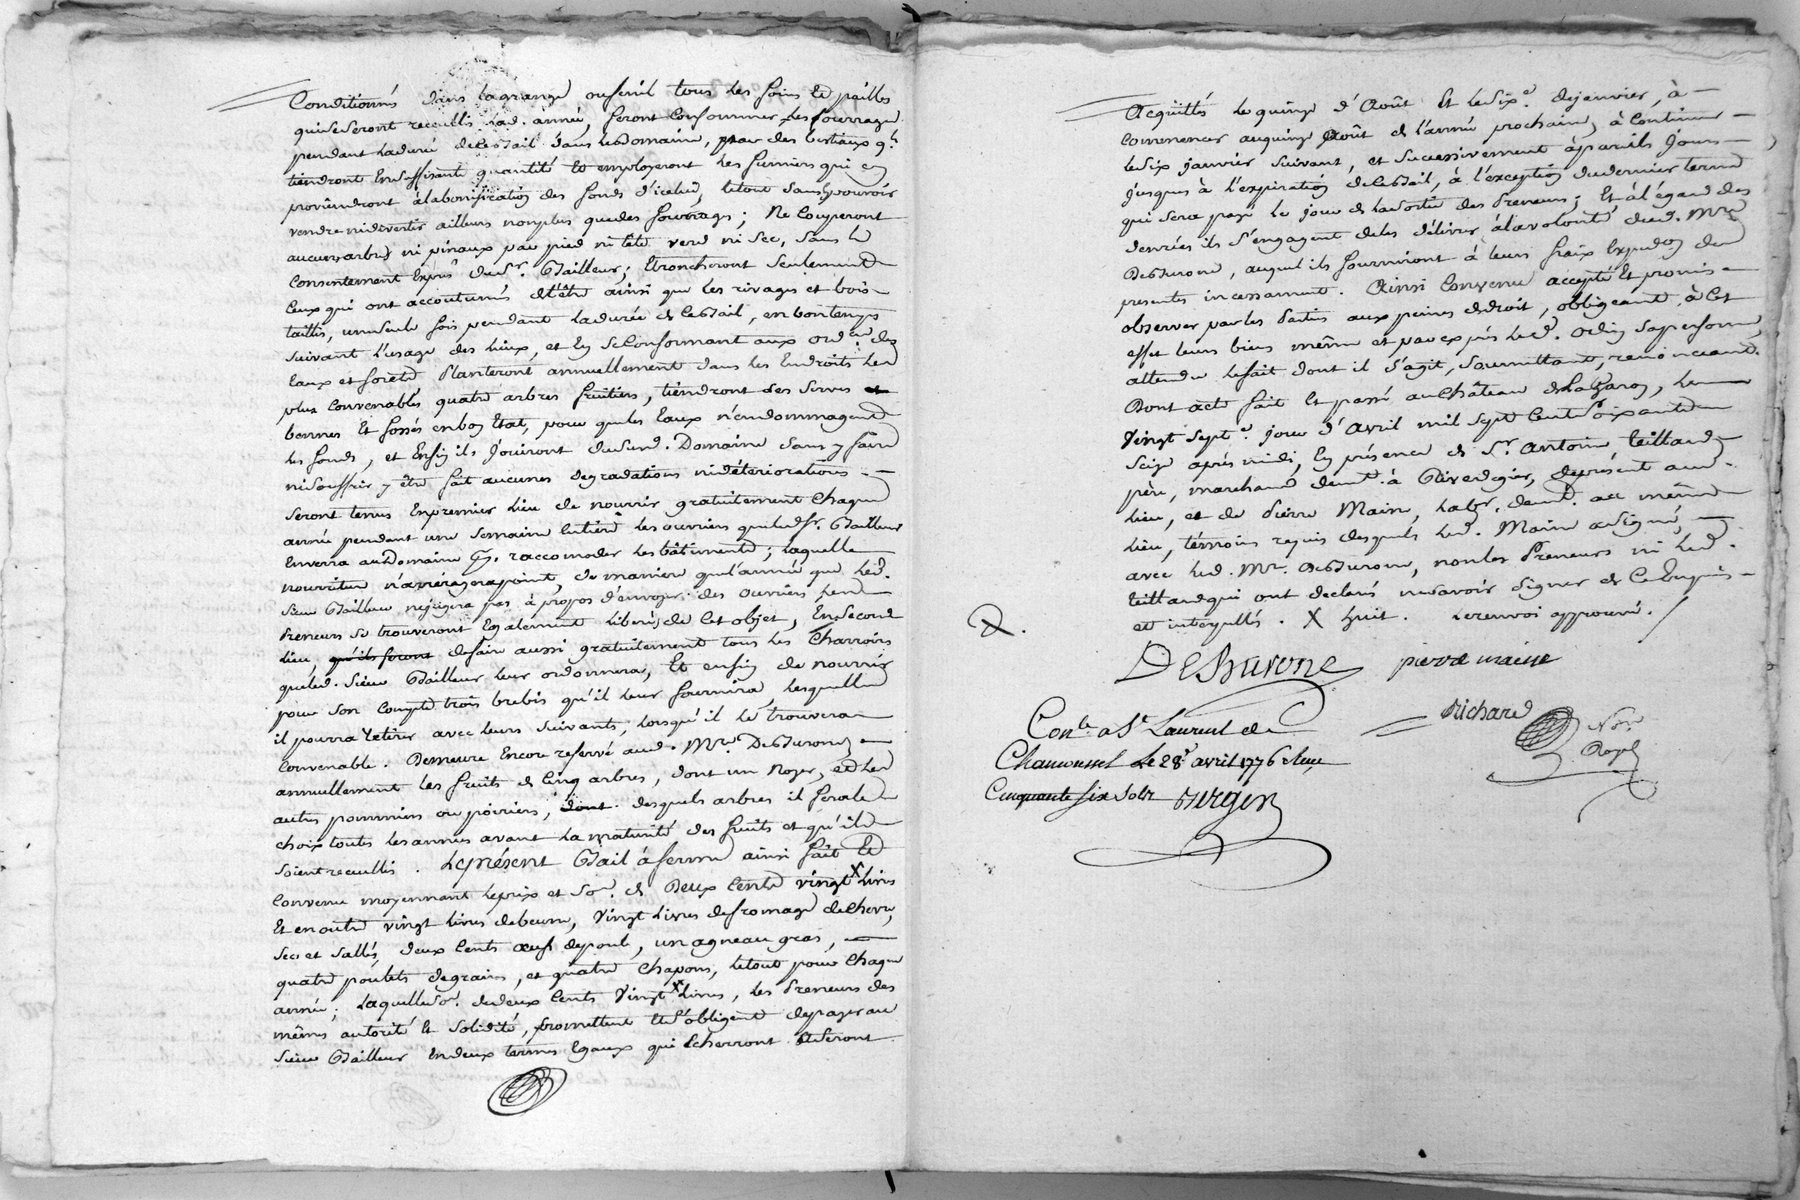 Conditionnés dans la grange ou fenil tous les foins et pailles
qui se seront recueillis lad. année, feront consommer les fourrages
pendant la durée de ce bail dans led. Domaine, par des bestiaux q.
tiendront en suffisante quantité et employeront les fumiers qui en
proviendront à la bonification des fonds d'icelui, le tout sans pouvoir
vendre ni divertir ailleurs non plus que des fourrages; Ne Couperont
aucuns arbres ni pinaux par pied ni tête verd ni sec, sans le
consentement Exprès dud. Sr. Bailleur; Etroncheront seulement
ceux qui ont accoutumés d'Etre ainsi que les rivages et bois
taillis, une seule fois pendant la durée de ce bail, en bon temps
suivant l'usage des lieux, et En se Conformant aux ord.ces des
Eaux et forêts Planteront annuellement dans les Endroits les
plus Convenables quatre arbres fruitiers, tiendront des serves et
bermes Et fossés en bon Etat, pour que les Eaux n'endommagent
les fonds, et Enfin ils Jouiront dususd. Domaine sans y faire
ni souffrir y être fait aucunes degradations ni déteriorations
seront tenus En premier lieu de nourrir gratuitement Chaque
année pendant une semaine Entiere les ouvriers que led. Sr. Bailleur
Enverra aud. Domaine pr. raccomoder les bâtiments; laquelle
nourriture n'arrêragera point, de maniere que l'année que led.
Sieur Bailleur ne jugera pas à propos d'envoyer des ouvriers, les
Preneurs se trouveront Egalement libérés de cet objet, En second
lieu, qu'ils feront de faire aussi gratuitement tous les Charrois
que led. Sieur Bailleur leur ordonnera, Et enfin de nourrir
pour son Compte trois brebis qu'il leur fournira, lesquelles
il pourra retirer avec leurs suivants, lorsqu'il le trouvera
Convenable. Demeure Encore reservé aud. Mr. DeBurone
annuellement les fruits de Cinq arbres, dont un Noyer, et les
autres pommiers ou poiriers, dont desquels arbres il fera le
choix toutes les années avant la maturité des fruits et qu'ils
soient recueillis. Le présent Bail à ferme ainsi fait Et
Convenu moyennant le prix et Som. de Deux Cents vingt X livres
Et en outre vingt livres de beurre, Vingt Livres de fromage de Chevre,
secs et sallés, deux Cents oeufs de poule, un agneau gras,
quatre poulets de grains, et quatre Chapons, le tout pour Chaque
année; Laquelle So. de deux Cents Vingt X livres, les Preneurs des
mêmes autorité Et solidité, promettent Et s'obligent de payer au
Sieur Bailleur En deux termes Egaux qui Echerront Et seront
Acquittés Le quinze d'Août Et le six.e de janvier, à
commencer au quinze Août de l'année prochaine, à Continuer
le six janvier suivant, et successivement à pareils Jours
jusques à l'expiration de ce bail, à l'exception du dernier terme
qui sera payé le jour de la sortie des Preneurs; Et à l'égard des
denrées ils s'engagent de les délivrer à la volonté dud. Mr.
DeBurone, auquel ils fourniront à leurs fraix Expedon des
presentes incessament. Ainsi Convenu accepté Et promis
observer par les Parties aux peines de droit, obligeant à Cet
effet leurs biens même et par exprès led. Odin sa personne
attendu le fait dont il s'agit, soumettant, renonceant.
Dont acte fait Et passé au Château, le
vingt sept.e jour d'avril mil sept Cent soixante
seize après midi, En présence de Sr. Antoine teilland
père, marchand demt. à, de présent aud.
lieu, et de Pierre Maine, labr. demt. au même
lieu, témoins requis desquels led. Maine a signé,
avec led. Mr. DeBurone, non les Preneurs ni led.
teilland qui ont declaré ne savoir signer de Ce Enquis
et interpellés. X huit. Le renvoi approuvé.
DeBurone pierre maine
Richard Nore
Royal
Conle. a St Laurent de
Chamousset Le 28e avril 1776 Reçu
Cinquante six sols